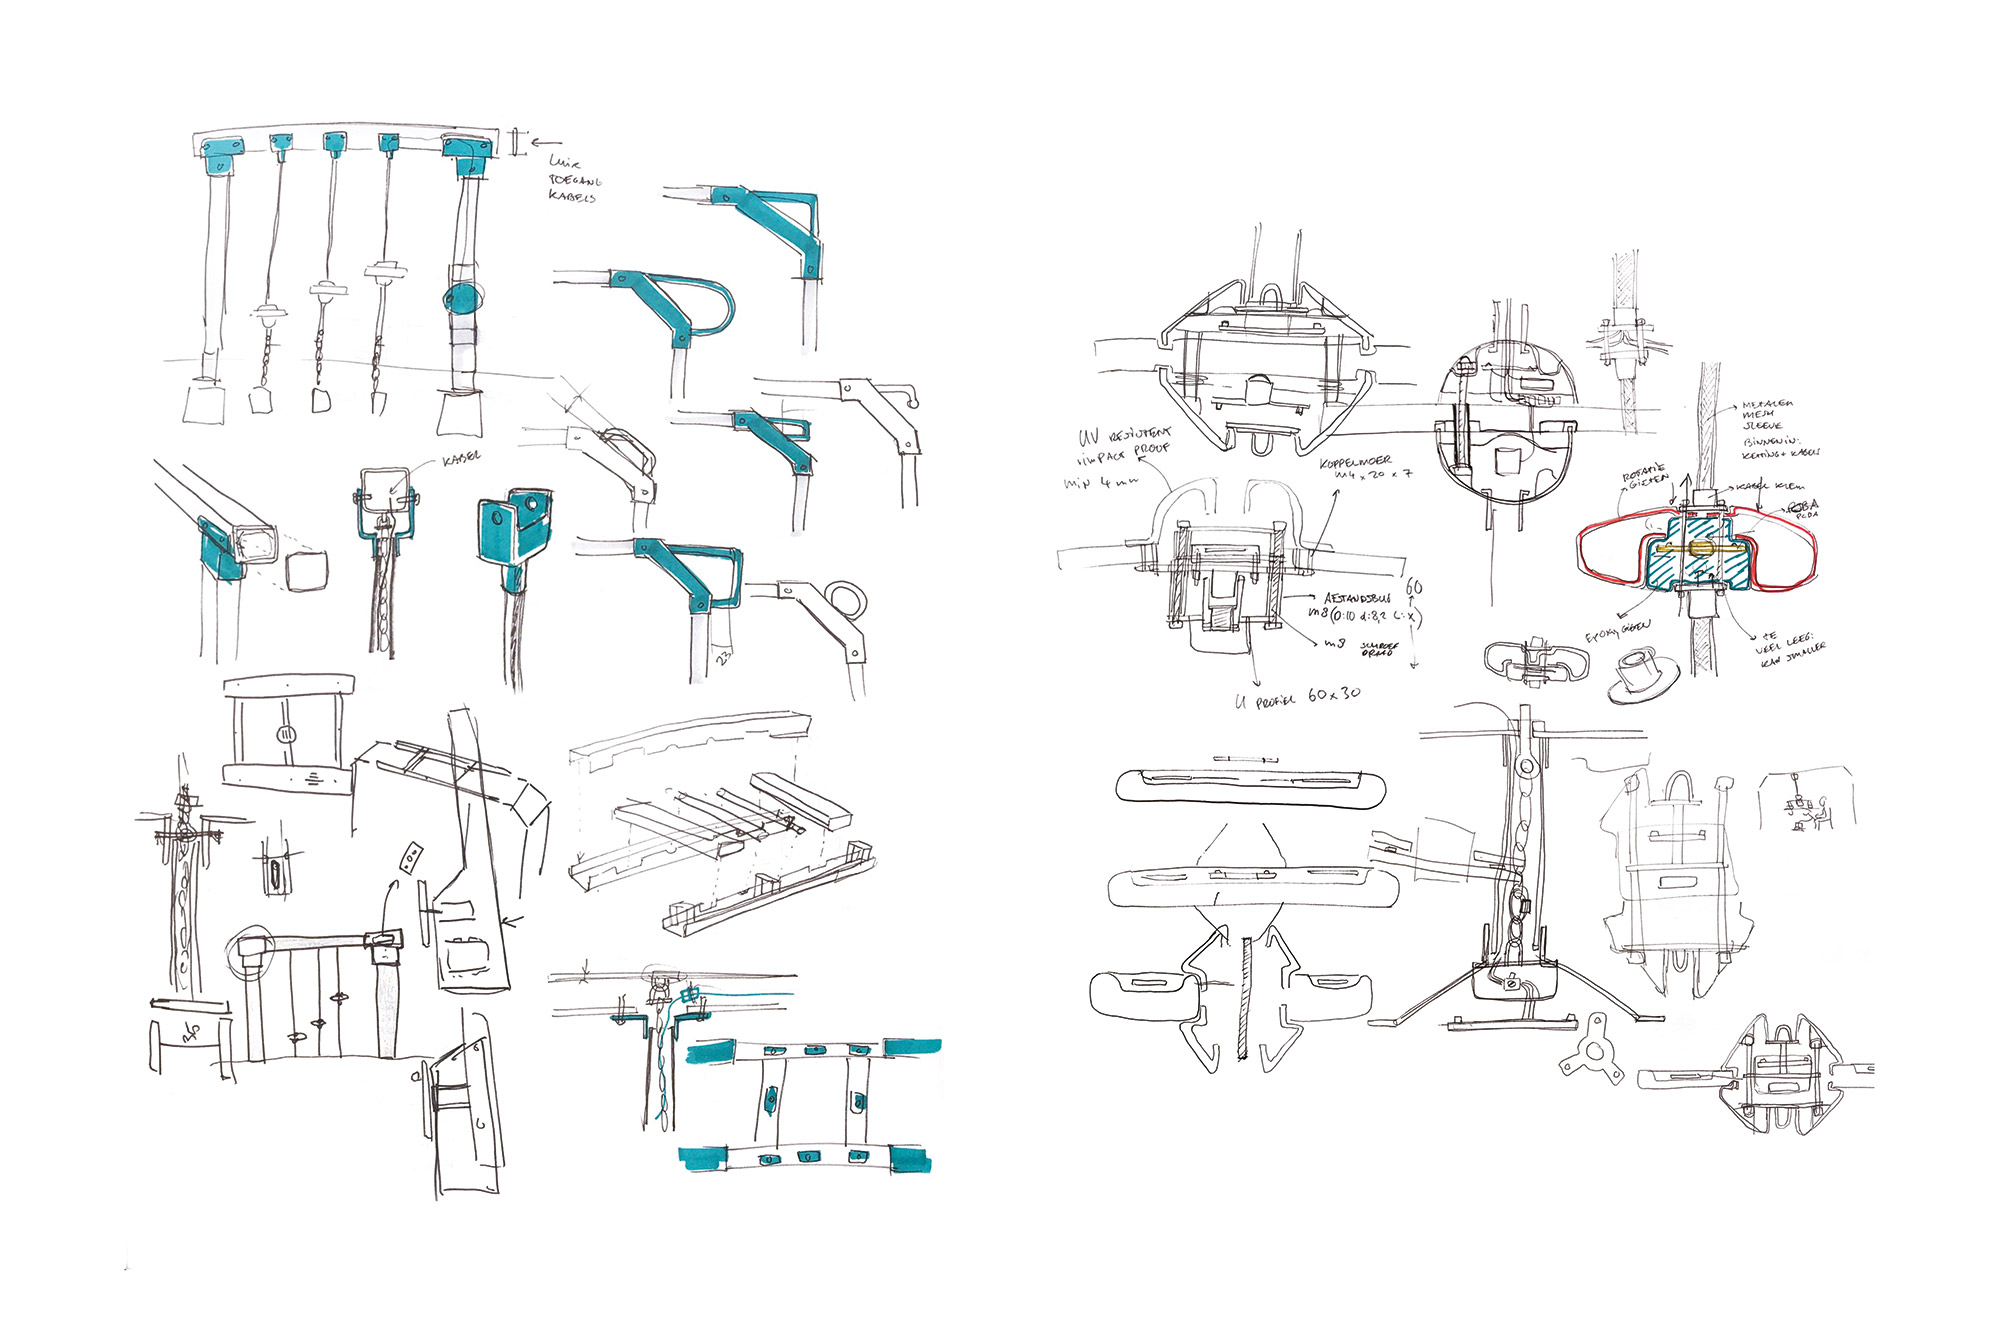 Luik
TOEGANG
KABELS
KABEL
23
35
UV RESISTENT
IMPACT PROOF
min 4 mm
KOPPELMOER
m4 x 20 x 7
AFSTANDSBUS
m8 (D:10 d:8,2 L:x)
60
m8 SCHROEF
DRAAD
U PROFIEL 60 x 30
METALEN
MESH
SLEEVE
BINNENIN:
KETTING + KABELS
ROTATIE
GIETEN
KABEL KLEM
PCBA
EPOXY GIETEN
TE LEEG:
VEEL
KAN SMALLER